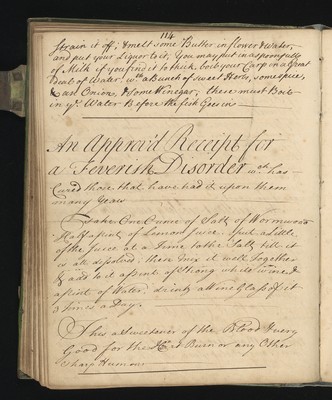 114
Strain it off; & melt some Butter in flower & water,
and put your Liquor to it, You may put in a spoonfull
of Milk if you find it to thick, boil your Carp in a Great
deal of Water, wth a Bunch of sweet Herbs, some spice,
& an Onion, & some Vinegar, these must Boil
in ye Water Before the fish Goes in
An Approv'd Receipt for
a Feverish Disorder wch has
Cured those that have had it upon them
many Years
Take One Ounce of Salt of Wormwood
Half a pint of Lemon Juice, put a Little
of the Juice at a Time to the Salt till it
is all dissolved; then Mix it well together
& add to it a pint of strong white wine &
a pint of Water, drink a Wine Glass of it
3 times a Day.
This a Sweetener of the Blood & very
Good for the Hart Burn or any Other
Sharp Humour